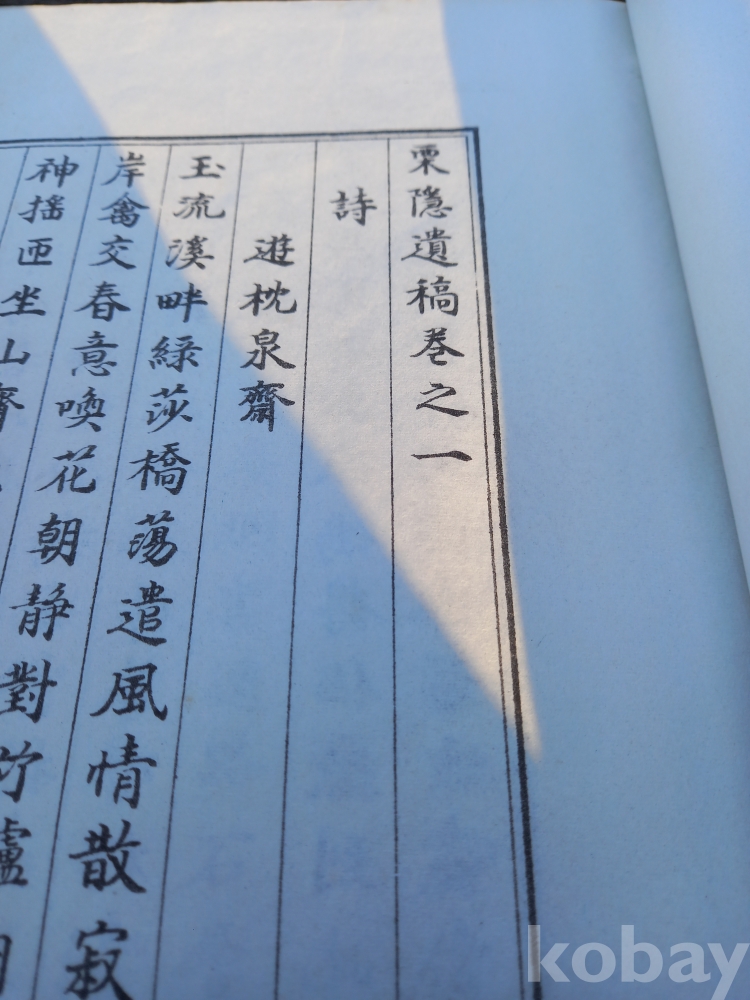 栗隱遺稿卷之一
詩
遊枕泉齋
玉流溪畔綠莎橋蕩遣風情散寂
岸禽交春意喚花朝靜對竹爐
神搖面坐山齋
kobay